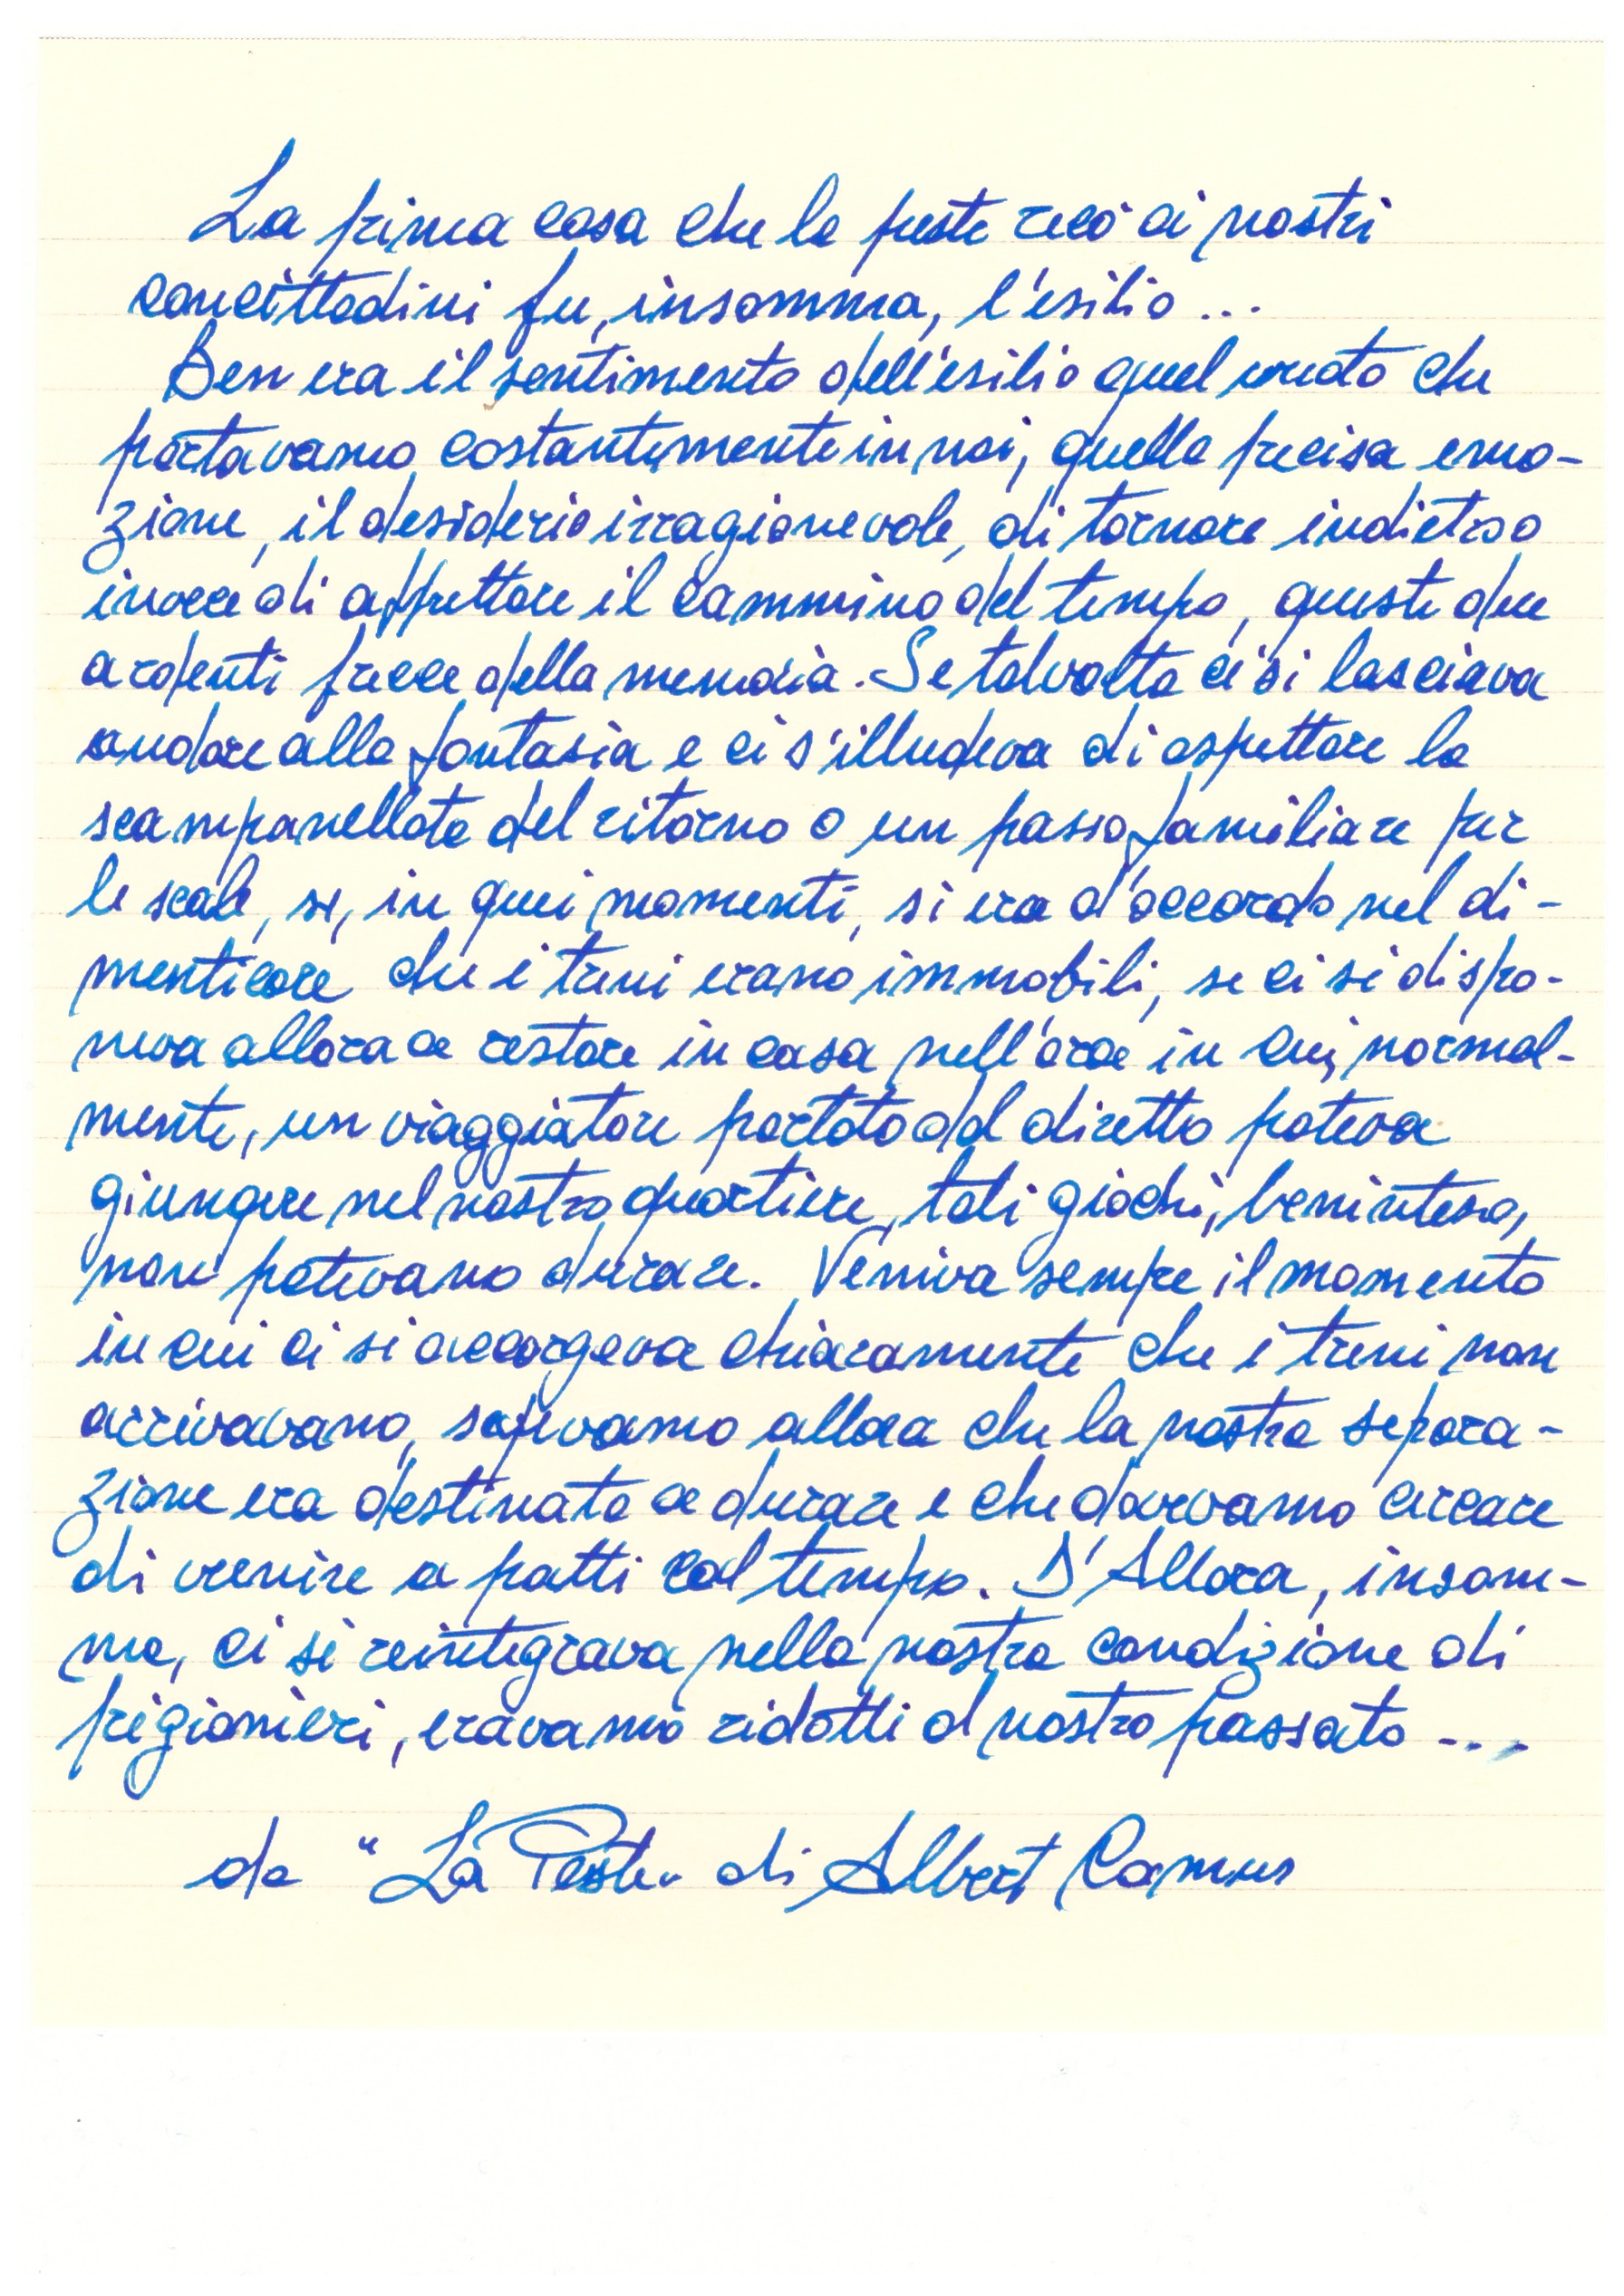 La prima cosa che la peste recò ai nostri
concittadini fu, insomma, l'esilio ...
Ben era il sentimento dell'esilio quel vuoto che
portavamo costantemente in noi, quella precisa emo-
zione, il desiderio irragionevole, di tornare indietro
invece di affrettare il cammino del tempo, queste due
ardenti frecce della memoria. Se talvolta ci si lasciava
andare alla fantasia e ci s'illudeva di aspettare la
scampanellata del ritorno o un passo familiare per
le scale, se, in quei momenti, si era d'accordo nel di-
menticare che i treni erano immobili, se ci si dispo-
neva allora a restare in casa nell'ora in cui, normal-
mente, un viaggiatore portato dal diretto poteva
giungere nel nostro quartiere, tali giochi, beninteso,
non potevano durare. Veniva sempre il momento
in cui ci si accorgeva chiaramente che i treni non
arrivavano, sapevamo allora che la nostra separa-
zione era destinata a durare e che dovevamo cercare
di venire a patti col tempo. D'Allora, insom-
ma, ci si reintegrava nella nostra condizione di
prigionieri, eravamo ridotti al nostro passato ....
da "La Peste" di Albert Camus